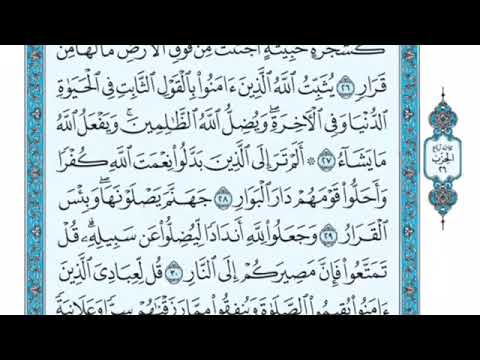 كَشَجَرَةٍ خَبِيثَةٍ ٱجْتُثَّتْ مِن فَوْقِ ٱلْأَرْضِ مَا لَهَا مِن
قَرَارٖ ٢٦ يُثَبِّتُ ٱللَّهُ ٱلَّذِينَ ءَامَنُواْ بِٱلْقَوْلِ ٱلثَّابِتِ فِي ٱلْحَيَوٰةِ
ٱلدُّنْيَا وَفِي ٱلْأٓخِرَةِۖ وَيُضِلُّ ٱللَّهُ ٱلظَّٰلِمِينَۚ وَيَفْعَلُ ٱللَّهُ
مَا يَشَآءُ ٢٧ ۞ أَلَمْ تَرَ إِلَى ٱلَّذِينَ بَدَّلُواْ نِعْمَتَ ٱللَّهِ كُفْرٗا
وَأَحَلُّواْ قَوْمَهُمْ دَارَ ٱلْبَوَارِ ٢٨ جَهَنَّمَ يَصْلَوْنَهَاۖ وَبِئْسَ
ٱلْقَرَارُ ٢٩ وَجَعَلُواْ لِلَّهِ أَندَادٗا لِّيُضِلُّواْ عَن سَبِيلِهِۦۗ قُلْ
تَمَتَّعُواْ فَإِنَّ مَصِيرَكُمْ إِلَى ٱلنَّارِ ٣٠ قُل لِّعِبَادِيَ ٱلَّذِينَ
ءَامَنُواْ يُقِيمُواْ ٱلصَّلَوٰةَ وَيُنفِقُواْ مِمَّا رَزَقْنَٰهُمْ سِرّٗا وَعَلَانِيَةٗ
الحزب
٢٦